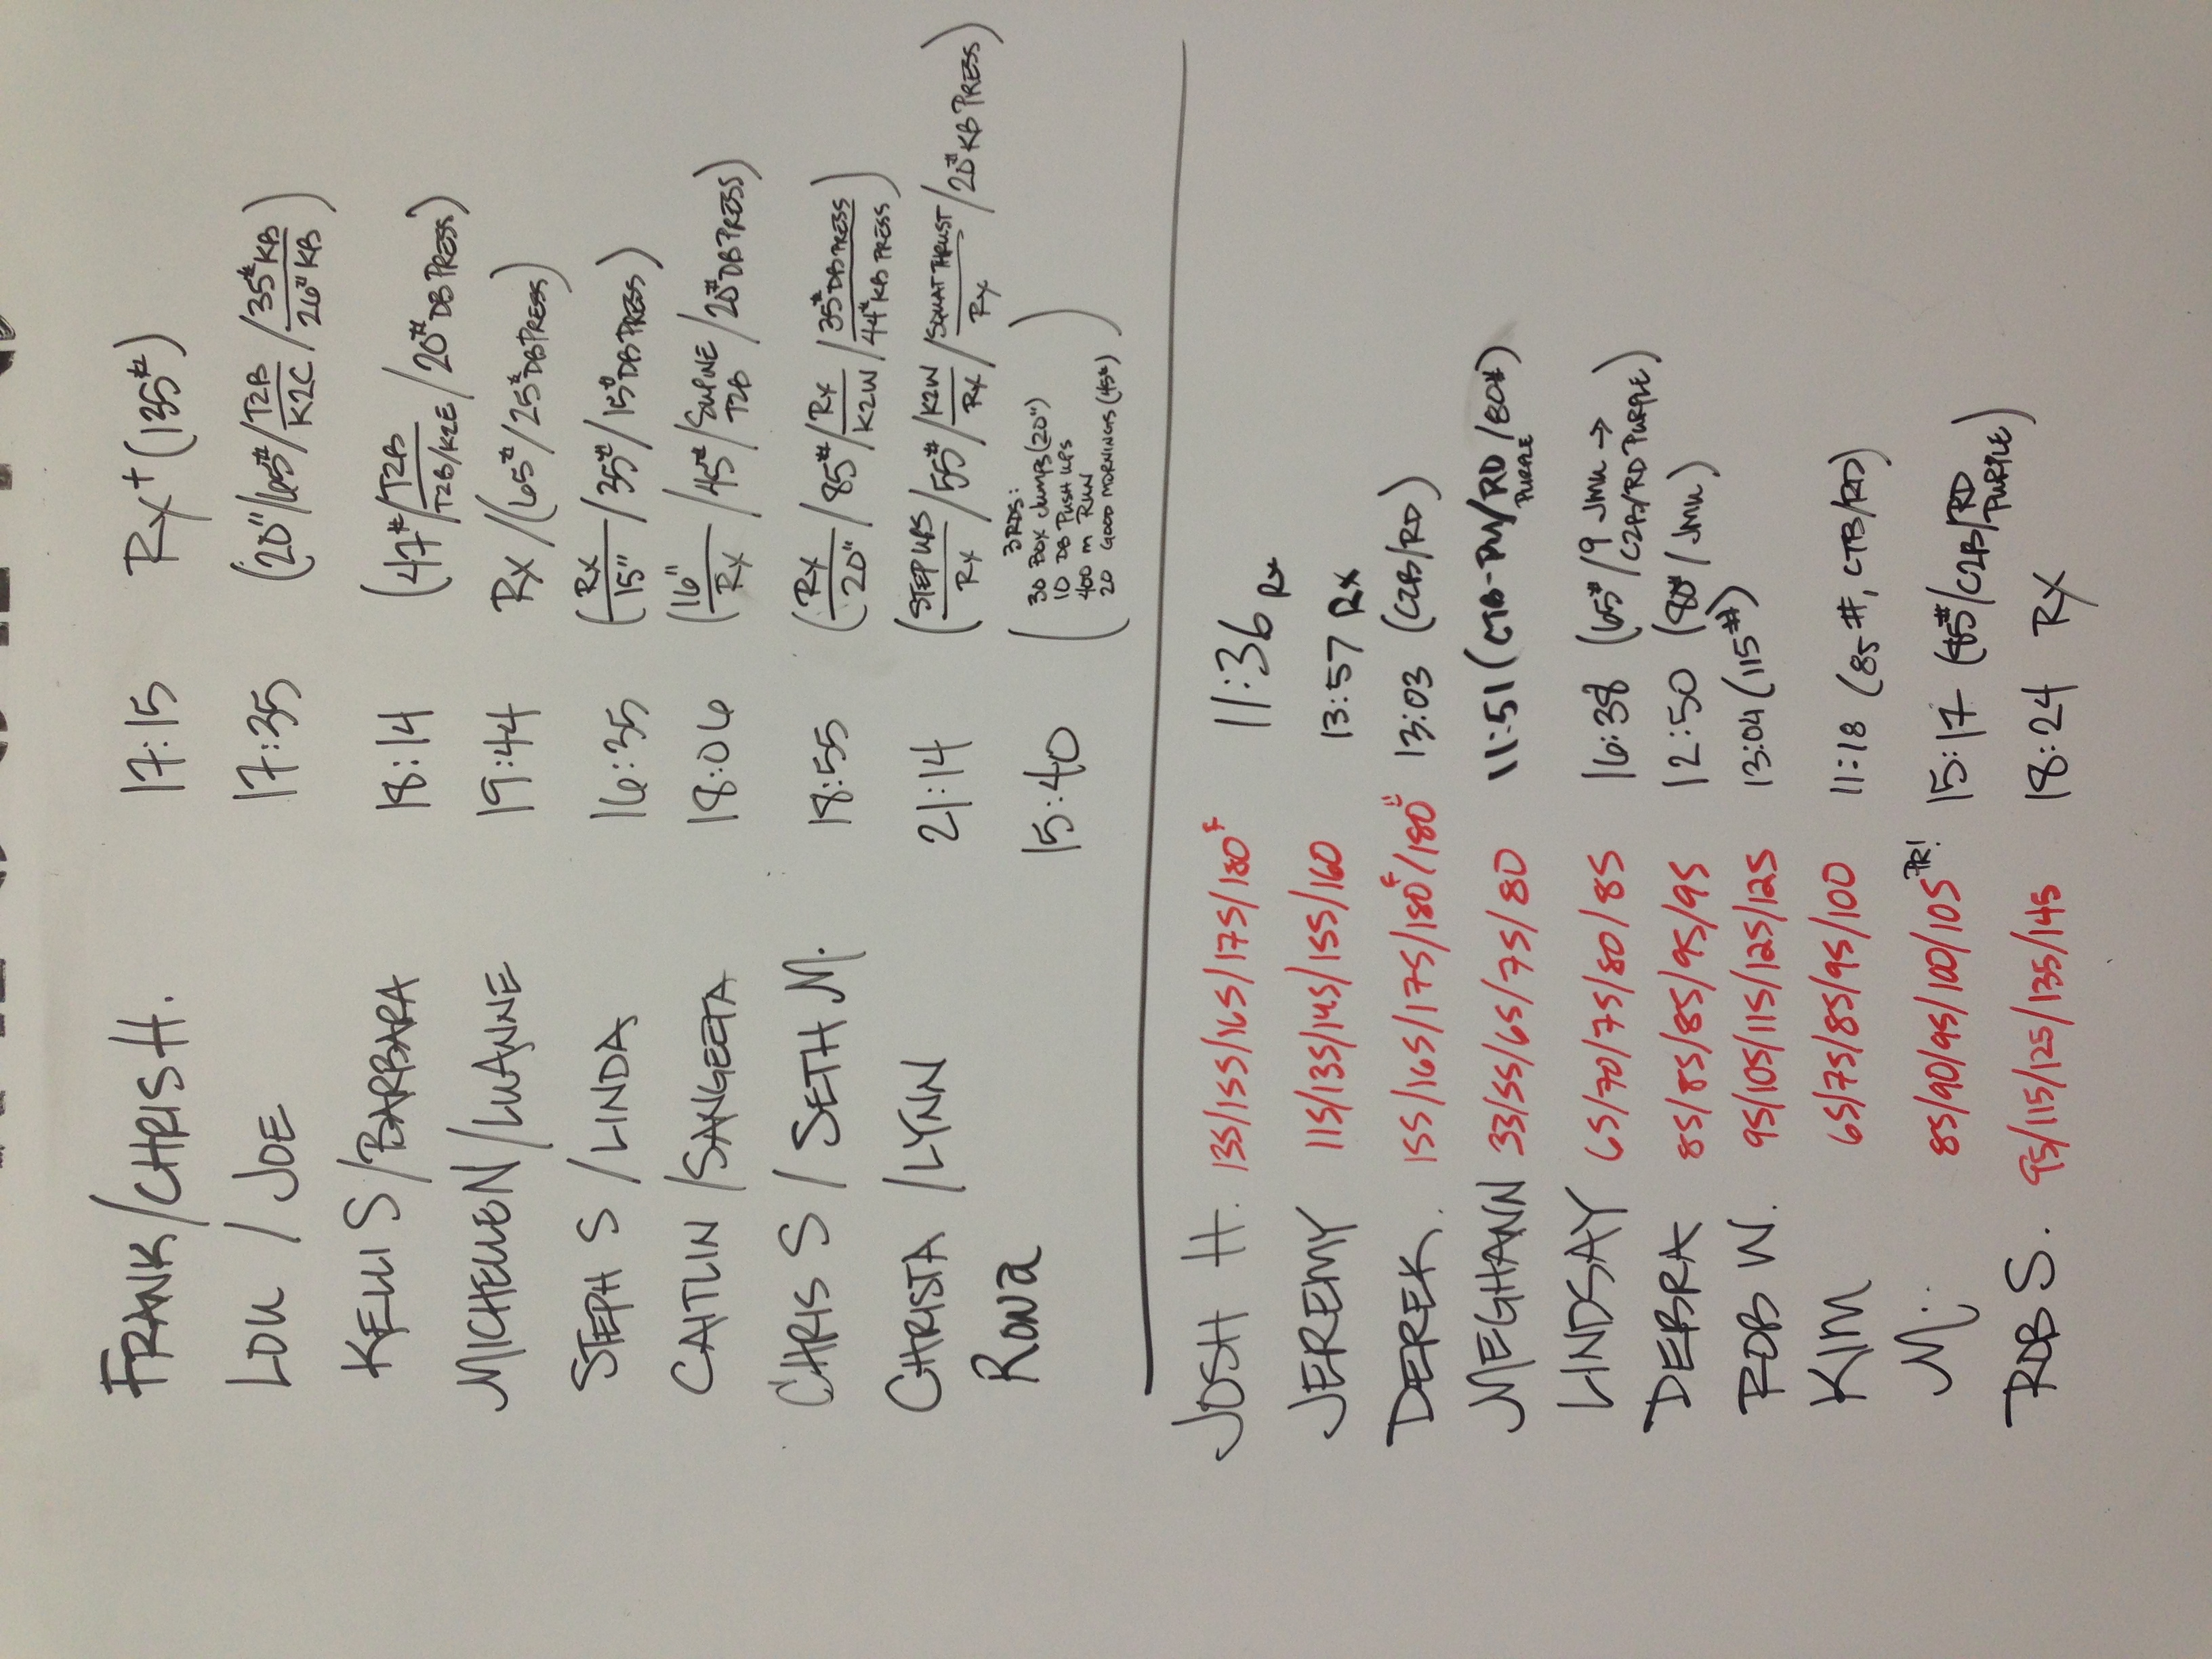 FRANK/CHRIS H. 17:15 Rx+ (135#)
LOU / JOE 17:35 (20"/65#/T2B/K2C/35# KB/26# KB)
KELLI S/BARBARA 18:14 (47#/T2B/T2B/K2E/20# DB PRESS)
MICHELLE N/LUANNE 19:44 Rx/(65#/25# DB PRESS)
STEPH S /LINDA 16:35 (Rx/15"/35#/15# DB PRESS)
CAITLIN /SANGEETA 18:06 (16"/Rx/45#/SUPINE T2B/20# DB PRESS)
CHRIS S / SETH M. 18:55 (Rx/20"/85#/Rx/K2W/35# DB PRESS/44# KB PRESS)
CHRISTA /LYNN 21:14 (STEP UPS/Rx/55#/K2W/Rx/SQUAT THRUST/Rx/20# KB PRESS)
Rona 15:40 (3RDS:
30 BOX JUMPS (20")
10 DB PUSH UPS
400 m RUN
20 GOOD MORNINGS (45#))
JOSH H. 135/155/165/175/180F 11:36 Rx
JEREMY 115/135/145/155/160 13:57 Rx
DEREK. 155/165/175/180F/180F 13:03 (C2B/RD)
MEGHANN 33/55/65/75/80 11:51 (CTB-PU/RD PURPLE/80#)
LINDSAY 65/70/75/80/85 16:38 (65#/9 JMU → C2B/RD PURPLE)
DEBRA 85/85/85/95/95 12:50 (80#/JMU)
ROB W. 95/105/115/125/125 13:04 (115#)
KIM 65/75/85/95/100 11:18 (85#, CTB/RD)
M: 85/90/95/100/105 PR! 15:17 (85#/C2B/RD PURPLE)
ROB S. 95/115/125/135/145 18:24 Rx